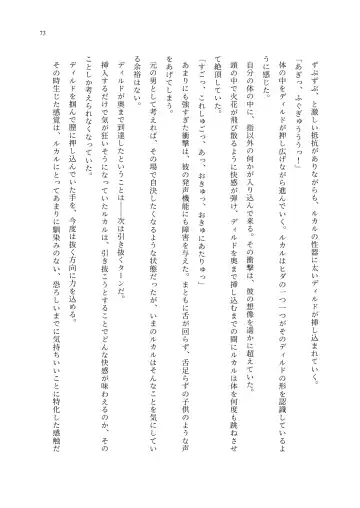 ずぶずぶ、と激しい抵抗がありながらも、ルカルの性器に太いディルドが挿し込まれていく。
「あぎっ、ふぐぎゅうううっ！」
体の中をディルドが押し広げながら進んでいく。ルカルはヒダの一つ一つがそのディルドの形を認識しているよ
うに感じた。
自分の体の中に、指以外の何かが入り込んで来る。その衝撃は、彼の想像を遥かに超えていた。
頭の中で火花が飛び散るように快感が弾け、ディルドを奥まで挿し込むまでの間にルカルは体を何度も跳ねさせ
て絶頂していた。
「すごっ、これしゅごっ、あっ、おきゅっ、おきゅにあたりゅっ」
あまりにも強すぎた衝撃は、彼の発声機能にも障害を与えた。まともに舌が回らず、舌足らずの子供のような声
をあげてしまう。
元の男として考えれば、その場で自決したくなるような状態だったが、いまのルカルはそんなことを気にしてい
る余裕はない。
ディルドが奥まで到達したということは――次は引き抜くターンだ。
挿入するだけで気が狂いそうになっていたルカルは、引き抜こうとすることでどんな快感が味わえるのか、その
ことしか考えられなくなっていた。
ディルドを掴んで膣に押し込んでいた手を、今度は抜く方向に力を込める。
その時生じた感覚は、ルカルにとってあまりに馴染みのない、恐ろしいまでに気持ちいいことに特化した感触だ
73